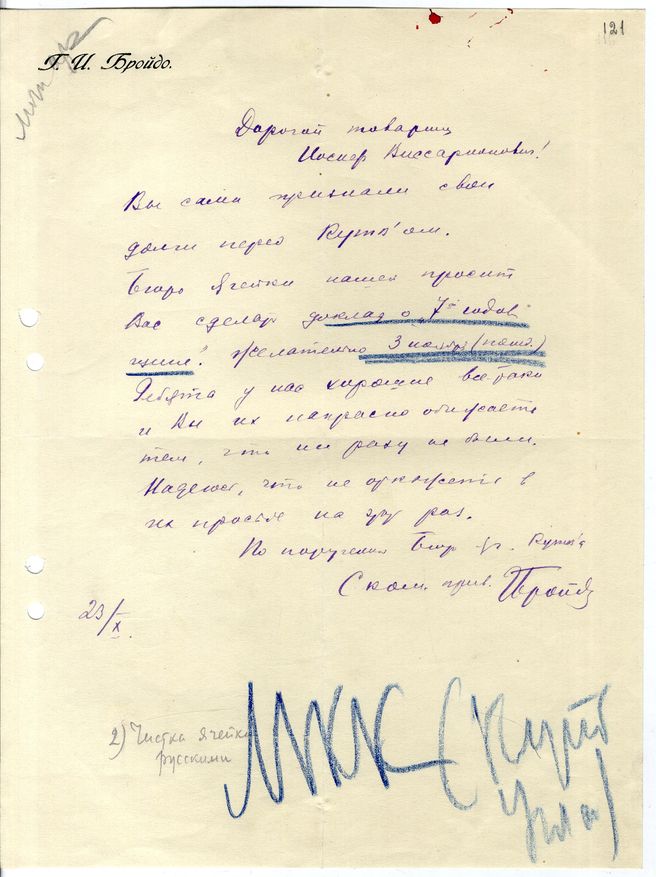 121
Г. И. Бройдо.
Дорогой товарищ
Иосиф Виссарионович!
Вы сами признали свои
долги перед Кутв'ом.
Бюро ячейки нашей просит
Вас сделать доклад о „7й годов
щине". Желательно 3 ноября (понед.)
Ребята у нас хорошие все-таки
и Вы их напрасно обижаете
тем, что ни разу не были.
Надеюсь, что не откажете в
их просьбе на этот раз.
По поручению Бюро яч. Кутв'а
С ком. прив. ГБройдо
23/X.
2) Чистка ячейки
русскими